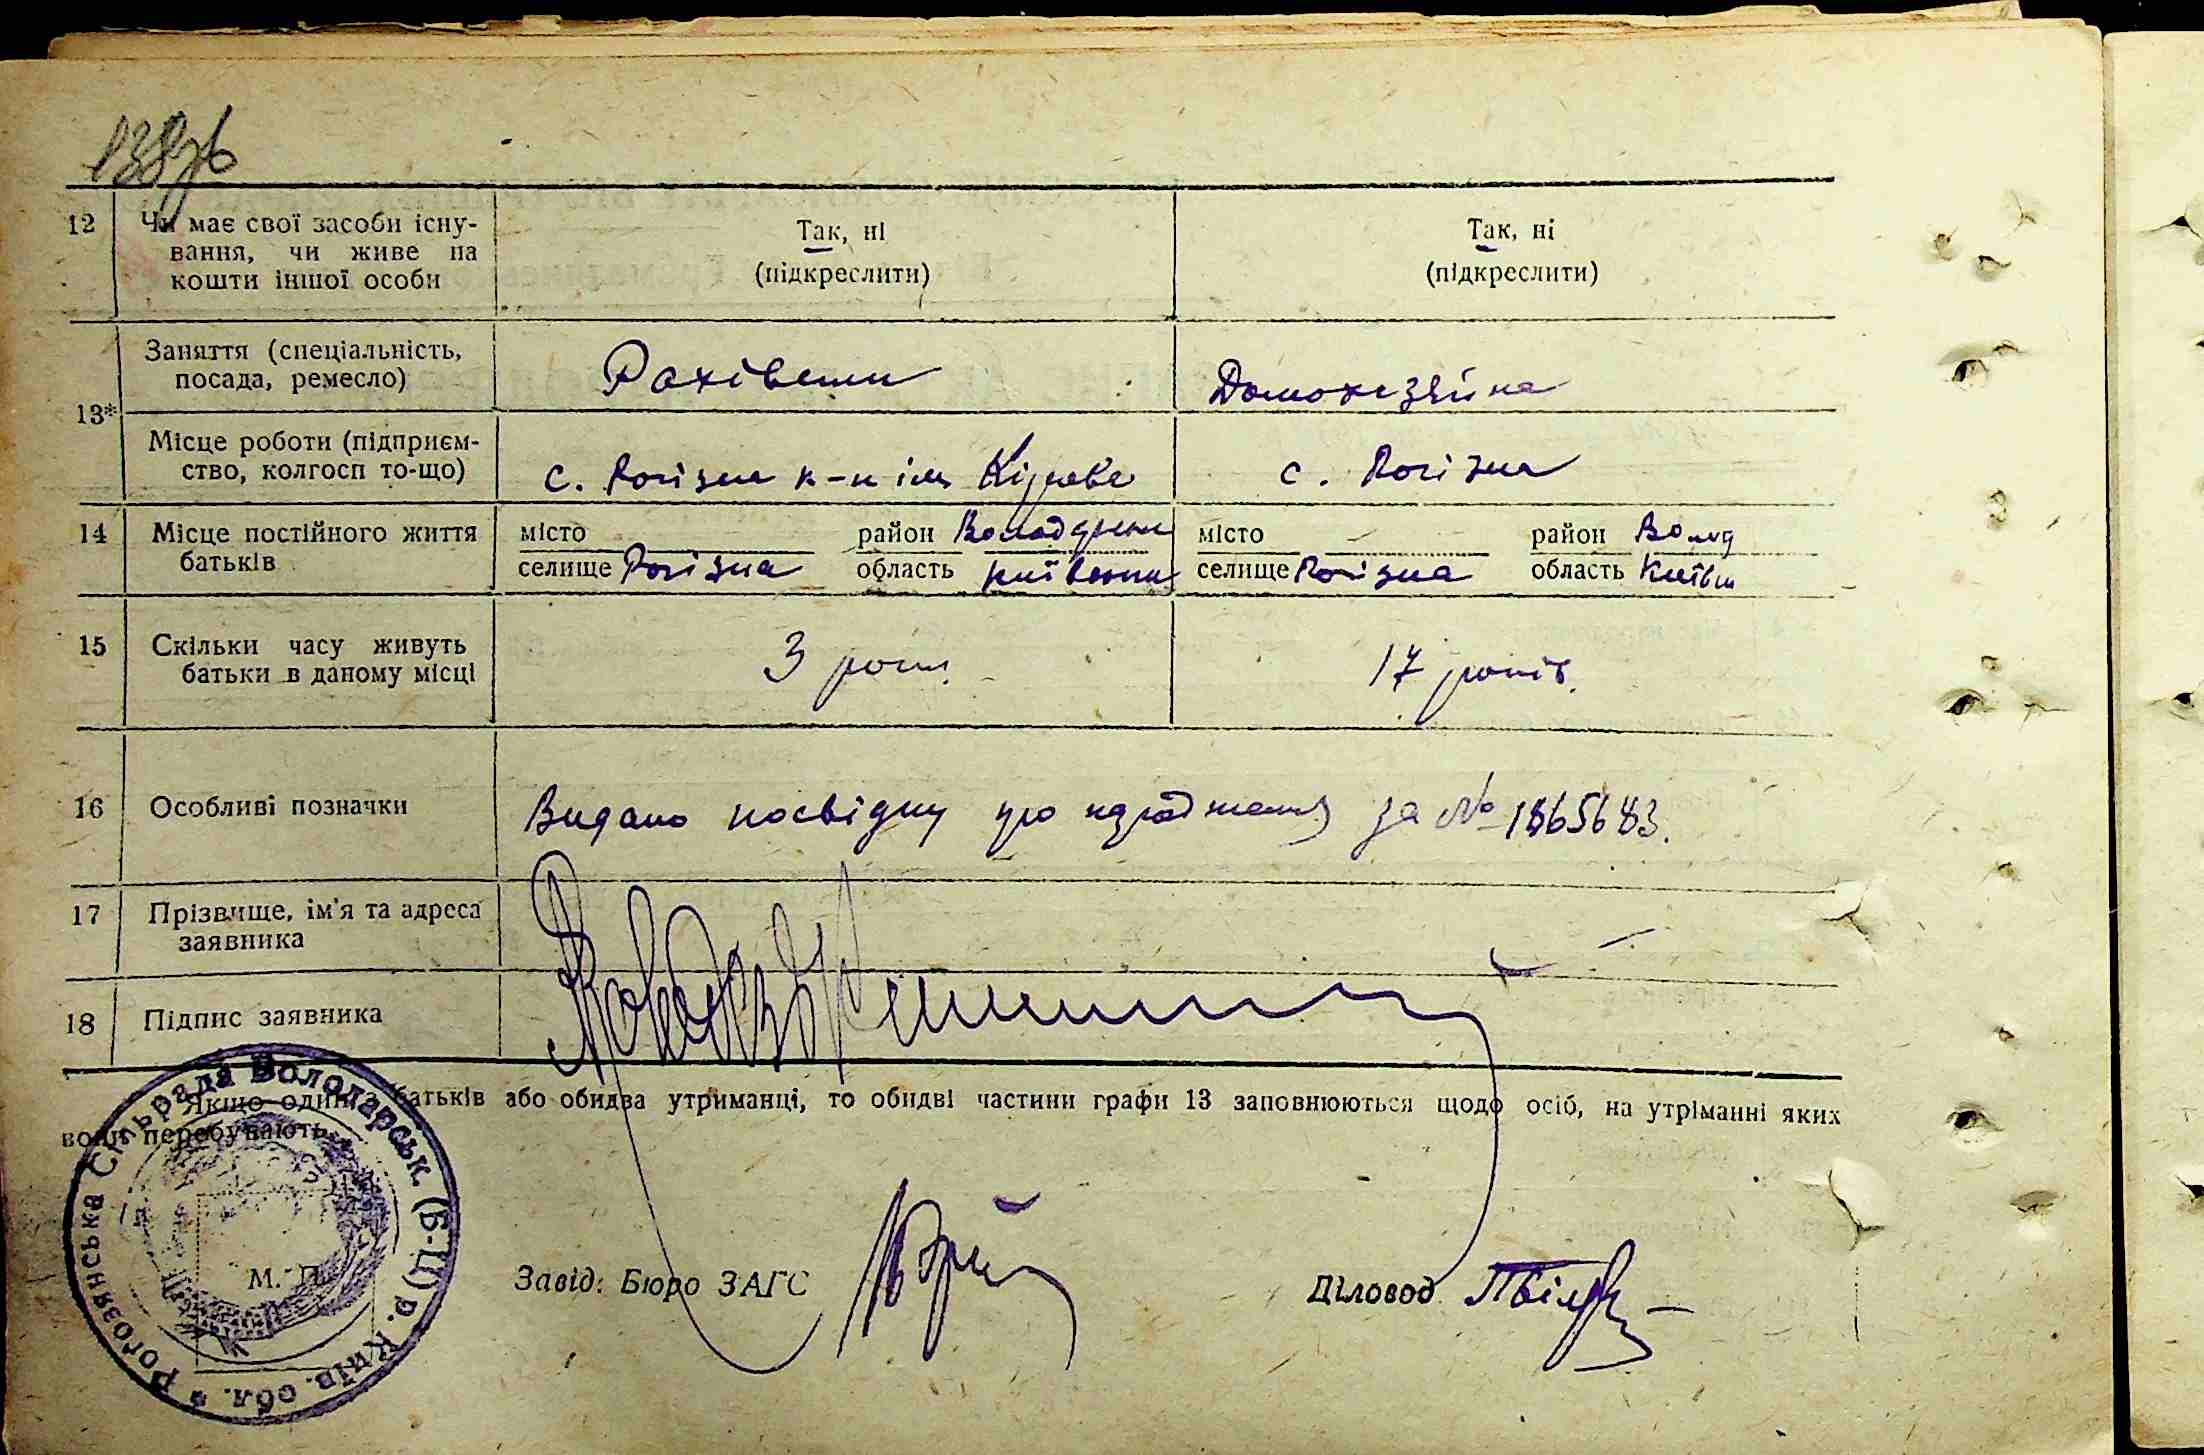 138зв
12 Чи має свої засоби існу-
вання, чи живе на
кошти іншої особи
Так, ні
(підкреслити)
Так, ні
(підкреслити)
13*
Заняття (спеціальність,
посада, ремесло)
Рахівник
Домохазяйка
Місце роботи (підприєм-
ство, колгосп то-що)
с. Рогізна к-п ім Кірова
с. Рогізна
14 Місце постійного життя
батьків
місто район Володарськ
селище Рогізна область Київськ
місто - район Волод
селище Рогізна область Київськ
15 Скільки часу живуть
батьки в даному місці
3 роки.
17 років.
16 Особливі позначки
Видано посвідку про народження за №
17 Прізвище, ім'я та адреса
заявника
18 Підпис заявника
Якщо один з батьків або обидва утриманці, то обидві частини графи 13 заповнюються щодо осіб, на утріманні яких
вони перебувають.
Рогозянська Сільрада Володарськ. (Б-Ц) р. Київ. обл.
М. П.
Завід: Бюро ЗАГС
Діловод